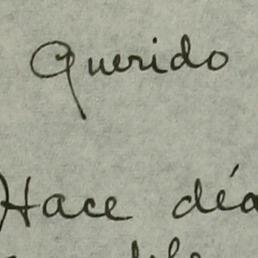 Querido
Hace día